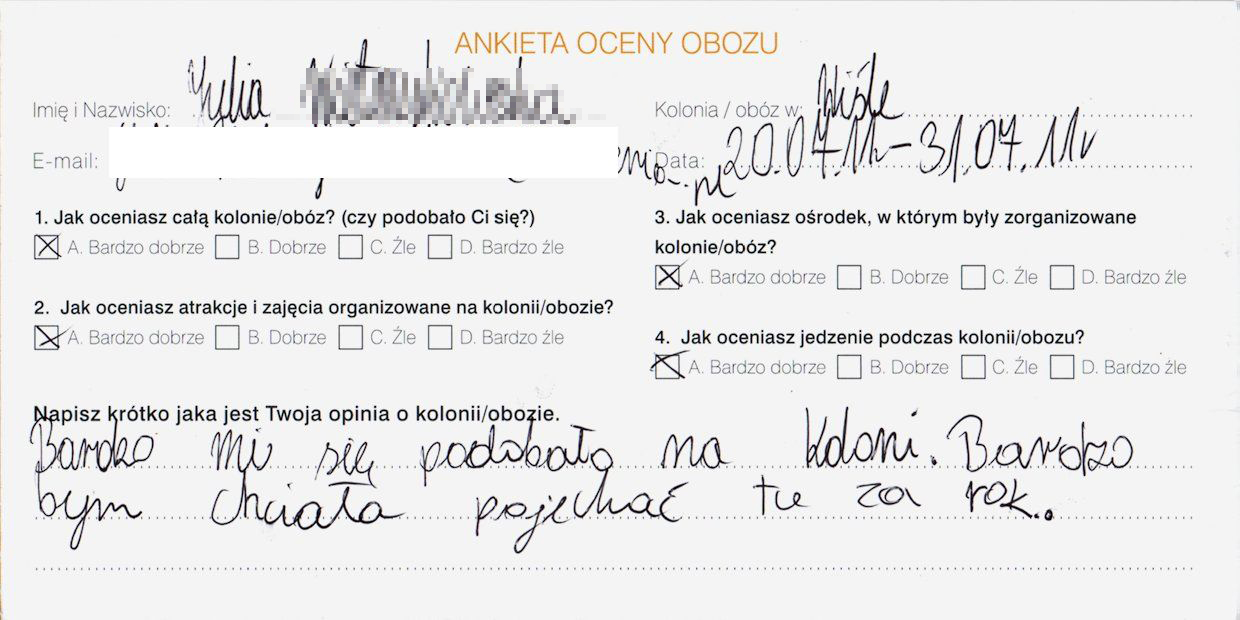 ANKIETA OCENY OBOZU
Imię i Nazwisko: Julia
Kolonia / obóz w: Wiśle
E-mail:
Data: 20.07.11r-31.07.11r
1. Jak oceniasz całą kolonie/obóz? (czy podobało Ci się?)
A. Bardzo dobrze B. Dobrze C. Źle D. Bardzo źle
2. Jak oceniasz atrakcje i zajęcia organizowane na kolonii/obozie?
A. Bardzo dobrze B. Dobrze C. Źle D. Bardzo źle
3. Jak oceniasz ośrodek, w którym były zorganizowane
kolonie/obóz?
A. Bardzo dobrze B. Dobrze C. Źle D. Bardzo źle
4. Jak oceniasz jedzenie podczas kolonii/obozu?
A. Bardzo dobrze B. Dobrze C. Źle D. Bardzo źle
Napisz krótko jaka jest Twoja opinia o kolonii/obozie.
Bardzo mi się podobało na koloni. Bardzo
bym chciała pojechać tu za rok..